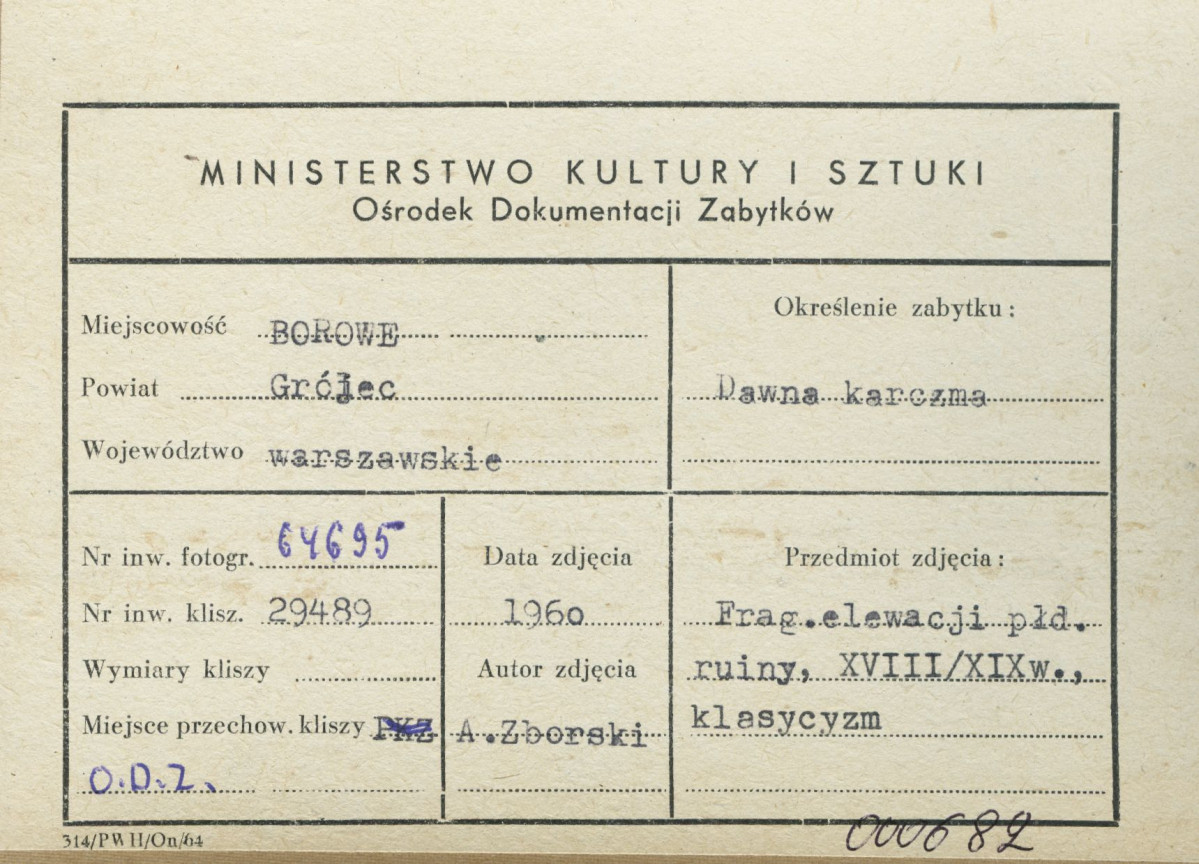 MINISTERSTWO KULTURY I SZTUKI
Ośrodek Dokumentacji Zabytków
Miejscowość BOROWE
Powiat Grójec
Województwo warszawskie
Określenie zabytku:
Dawna karczma
Nr inw. fotogr. 64695
Nr inw. klisz. 29489
Wymiary kliszy
Miejsce przechow. kliszy PKZ
O.D.Z.
Data zdjęcia
1960
Autor zdjęcia
A.Zborski
Przedmiot zdjęcia:
Frag.elewacji płd.
ruiny, XVIII/XIXw.,
klasycyzm
314/PWH/On/64
000682